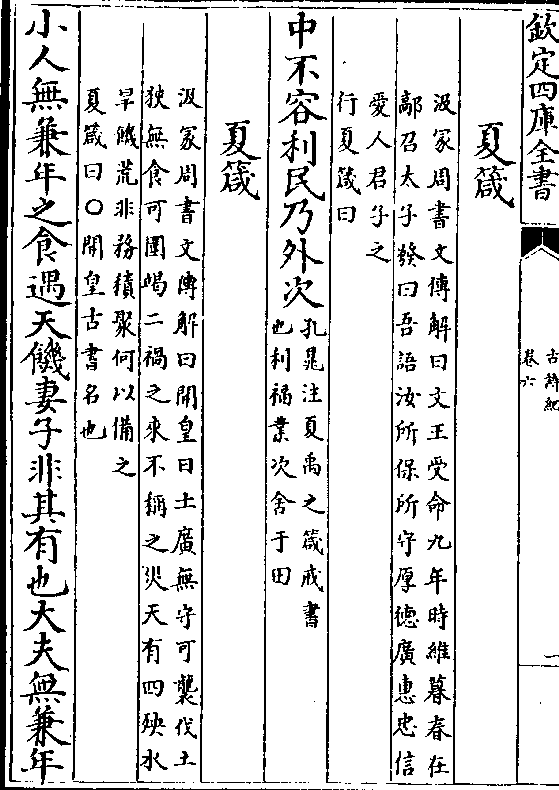 欽定四庫全書
古詩紀
卷六
一
夏箴
汲冢周書文傳解曰文王受命九年時維暮春在
鄗召太子發曰吾語汝所保所守厚德廣惠忠信
愛人君子之
行夏箴曰
中不容利民乃外次
孔晁注夏禹之箴戒書
也利福業次舍于田
夏箴
汲冢周書文傳解曰開皇曰土廣無守可襲伐土
狹無食可圍竭二禍之來不稱之災天有四殃水
旱饑荒非務積聚何以備之
夏箴曰○開皇古書名也
小人無兼年之食遇天饑妻子非其有也大夫無兼年